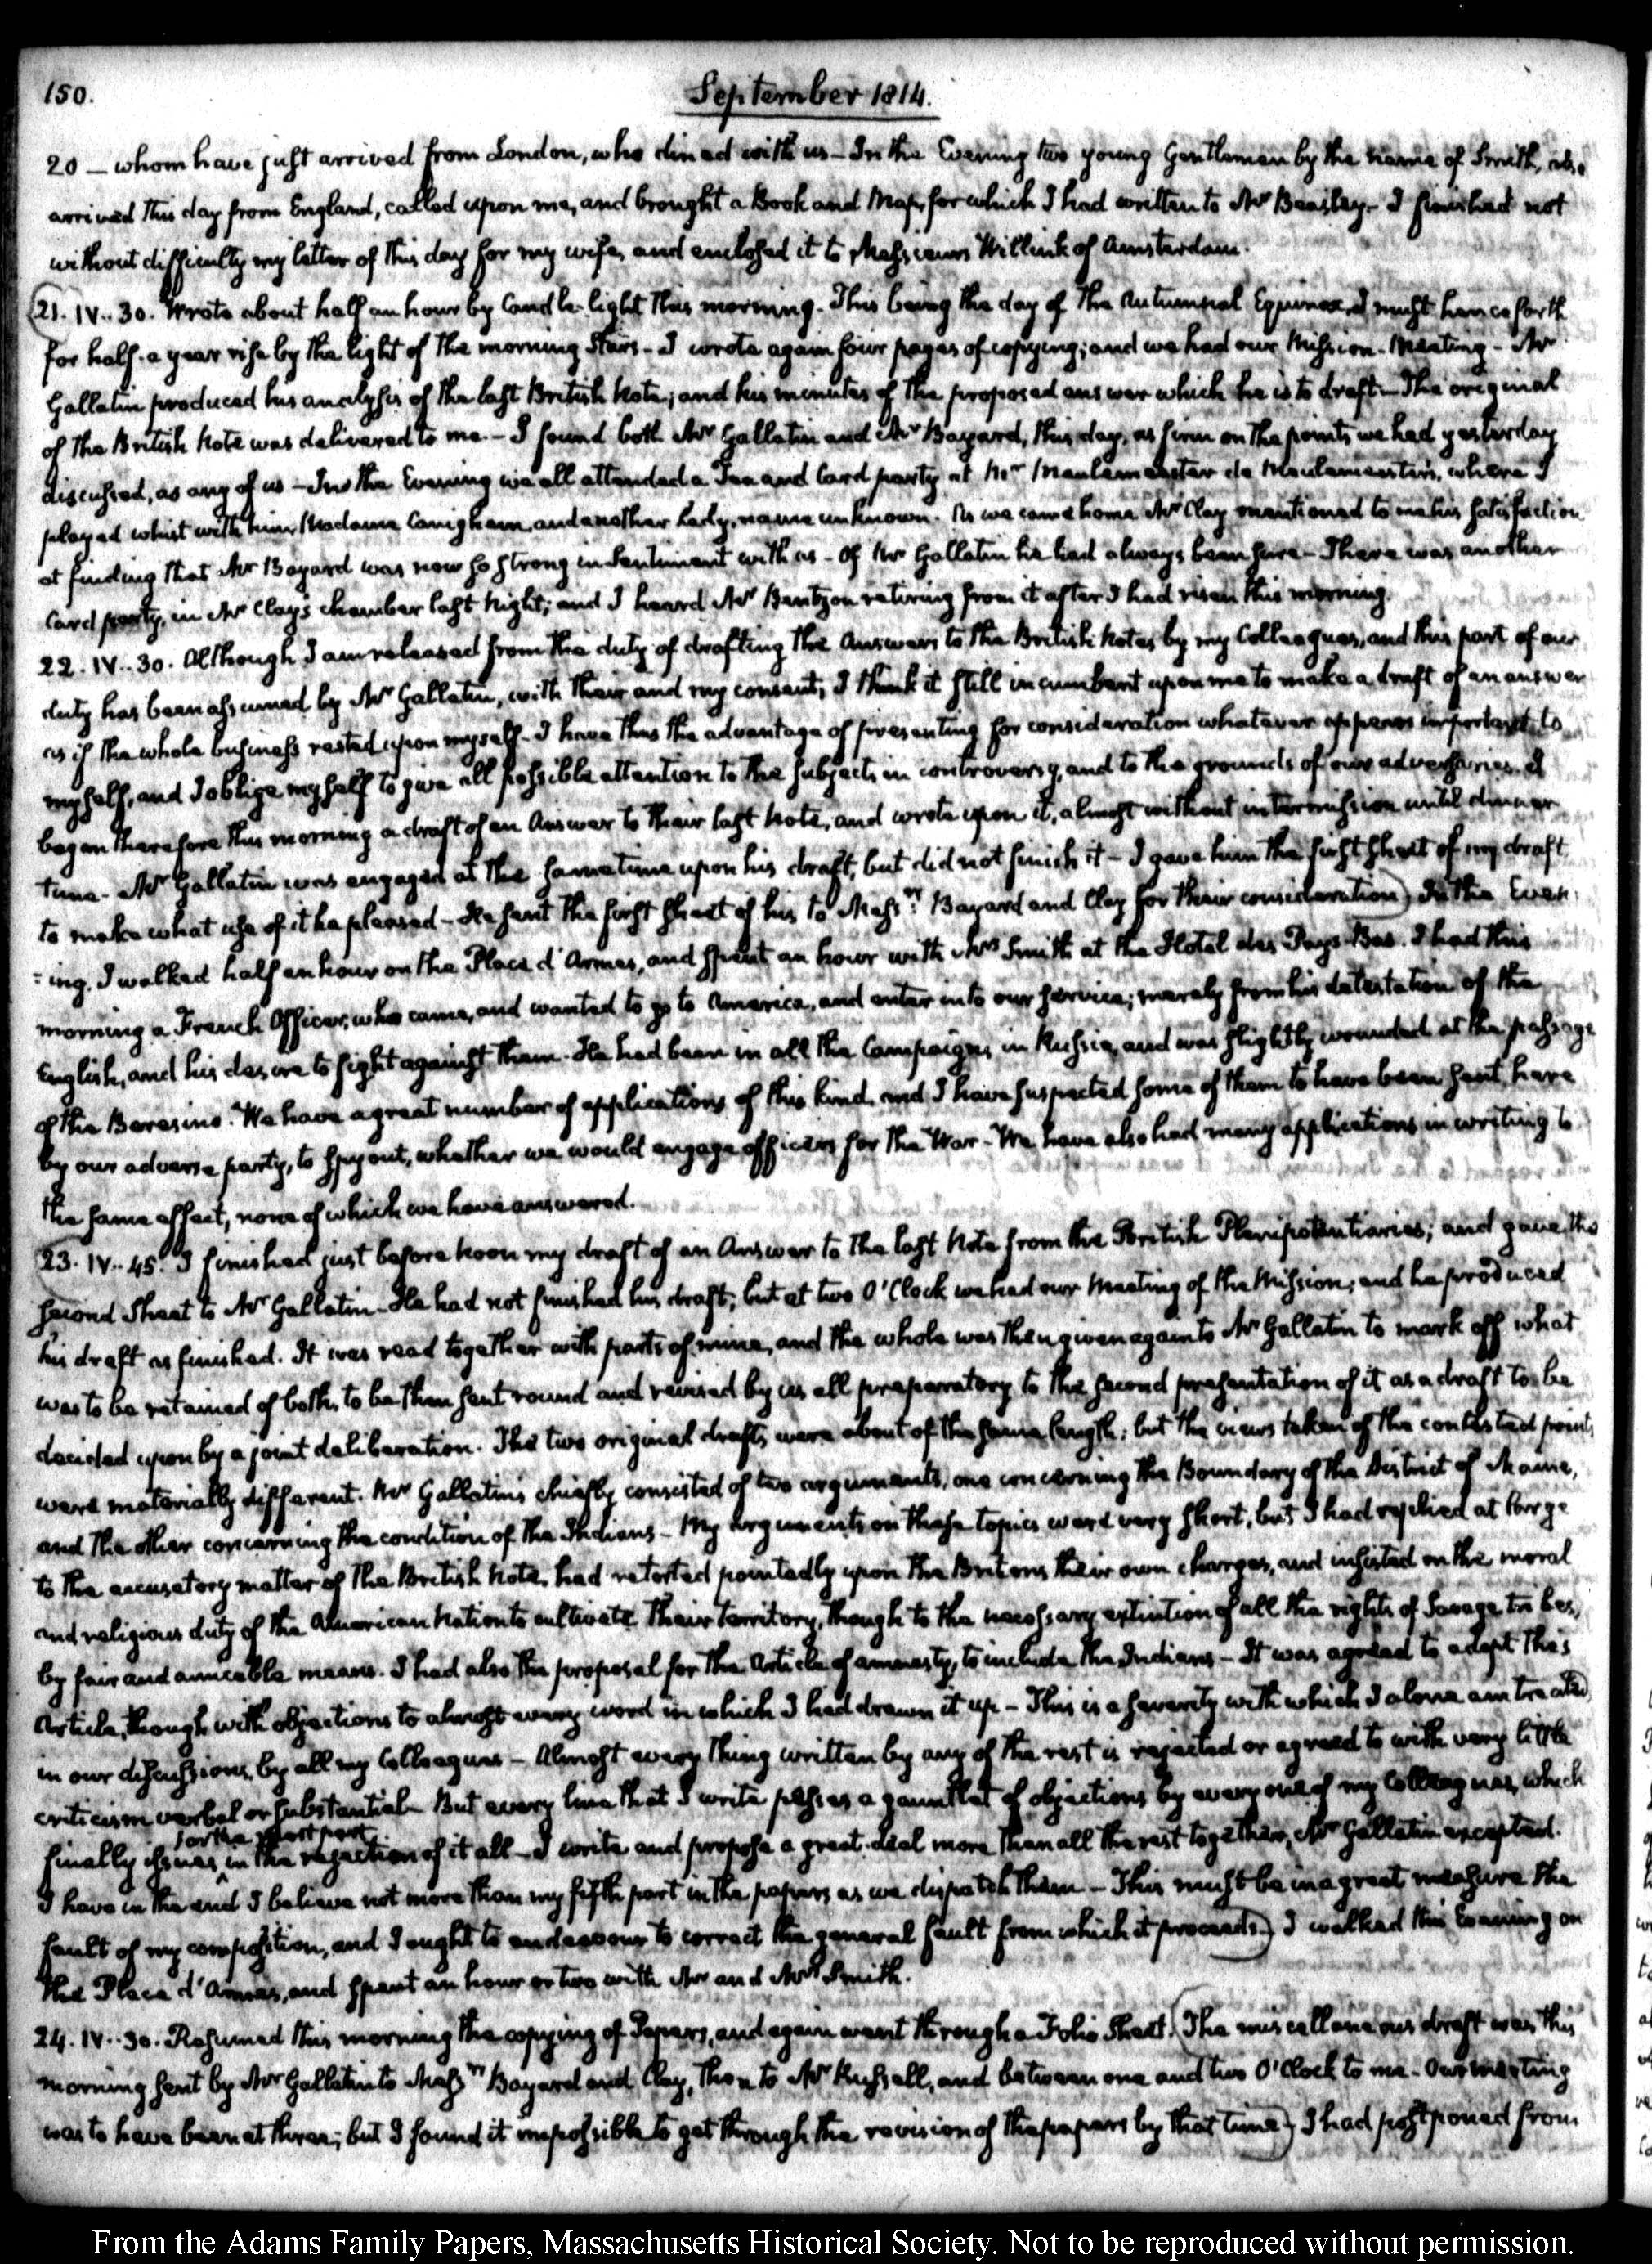 150.
September 1814.
20 — whom have just arrived from London, who dined with us — In the Evening two young Gentlemen by the name of Smith, also
arrived this day from England, called upon me, and brought a Book and Map, for which I had written to Mr Beasley. — I finished not
without difficulty my letter of this day for my wife, and enclosed it to Messieurs Willink of Amsterdam.
21. IV..30. Wrote about half an hour by Candle-light this morning. This being the day of the Autumnal Equinox, I must henceforth
for half a year rise by the light of the morning Stars — I wrote again four pages of copying; and we had our Mission-Meeting — Mr
Gallatin produced his analysis of the last British Note; and his minutes of the proposed answer which he is to draft — The original
of the British Note was delivered to me. — I found both Mr Gallatin and Mr Bayard, this day, as firm on the points we had yesterday
discussed, as any of us — In the Evening we all attended a Tea and Card party at Mr Meulemeester de Meulemeester, where I
played whist with him, Madame Canigham, and another Lady, name unknown. As we came home Mr Clay mentioned to me his satisfaction
at finding that Mr Bayard was now so strong in Sentiment with us — Of Mr Gallatin he had always been sure — There was another
Card party, in Mr Clay's chamber last Night; and I heard Mr Bentzon retiring from it after I had risen this morning.
22. IV..30. Although I am released from the duty of drafting the Answers to the British Notes by my Colleagues, and this part of our
duty has been assumed by Mr Gallatin, with their and my consent, I think it still incumbent upon me to make a draft of an answer
as if the whole business rested upon myself. I have thus the advantage of presenting for consideration whatever appears important to
myself, and I oblige myself to give all possible attention to the subjects in controversy, and to the grounds of our adversaries. I
began therefore this morning a draft of an Answer to their last Note, and wrote upon it, almost without intermission until dinner
time. Mr Gallatin was engaged at the same time upon his draft, but did not finish it — I gave him the first sheet of my draft
to make what use of it he pleased — He sent the first sheet of his to Messrs Bayard and Clay for their consideration) In the Even-
=ing, I walked half an hour on the Place d'Armes, and spent an hour with Mrs Smith at the Hotel des Pays-Bas. I had this
morning a French Officer, who came, and wanted to go to America, and enter into our service; merely from his detestation of the
English, and his desire to fight against them. He had been in all the Campaigns in Russia, and was slightly wounded at the passage
of the Beresino. We have a great number of applications of this kind, and I have suspected some of them to have been sent here
by our adverse party, to spy out, whether we would engage officers for the War — We have also had many applications in writing to
the same effect, none of which we have answered.
23. IV..45. I finished just before Noon my draft of an Answer to the last Note from the British Plenipotentiaries; and gave the
second Sheet to Mr Gallatin — He had not finished his draft; but at two O'Clock we had our Meeting of the Mission; and he produced
his draft as finished. It was read together with parts of mine, and the whole was then given again to Mr Gallatin to mark off what
was to be retained of both, to be then sent round and revised by us all preparatory to the second presentation of it as a draft to be
decided upon by a joint deliberation. The two original drafts were about of the same length; but the views taken of the contested points
were materially different. Mr Gallatin's chiefly consisted of two arguments, one concerning the Boundary of the District of Maine,
and the other concerning the condition of the Indians — My arguments on these topics were very short, but I had replied at large
to the accusatory matter of the British Note, had retorted pointedly upon the Britons their own charges, and insisted on the moral
and religious duty of the American Nation to cultivate their territory, though to the necessary extinction of all the rights of Savage tribes,
by fair and amicable means. I had also the proposal for the Article of amnesty, to include the Indians — It was agreed to adopt this
Article, though with objections to almost every word in which I had drawn it up — This is a severity with which I alone am treated
in our discussions, by all my Colleagues — Almost every thing written by any of the rest is rejected or agreed to with very little
criticism verbal or substantial. But every line that I write passes a gauntlet of objections by every one of my Colleagues, which
for the most part
finally issues in the rejection of it all — I write and propose a great deal more than all the rest together, Mr Gallatin excepted.
I have in the end I believe not more than my fifth part in the papers as we dispatch them — This must be in a great measure the
fault of my composition, and I ought to endeavour to correct the general fault from which it proceeds.) I walked this Evening on
the Place d'Armes, and spent an hour or two with Mr and Mrs Smith.
24. IV..30. Resumed this morning the copying of Papers, and again went through a Folio Sheet. (The miscellaneous draft was this
morning sent by Mr Gallatin to Messrs Bayard and Clay, then to Mr Russell, and between one and two O'Clock to me. Our meeting
was to have been at three; but I found it impossible to get through the revision of the papers by that time) I had postponed from
From the Adams Family Papers, Massachusetts Historical Society. Not to be reproduced without permission.